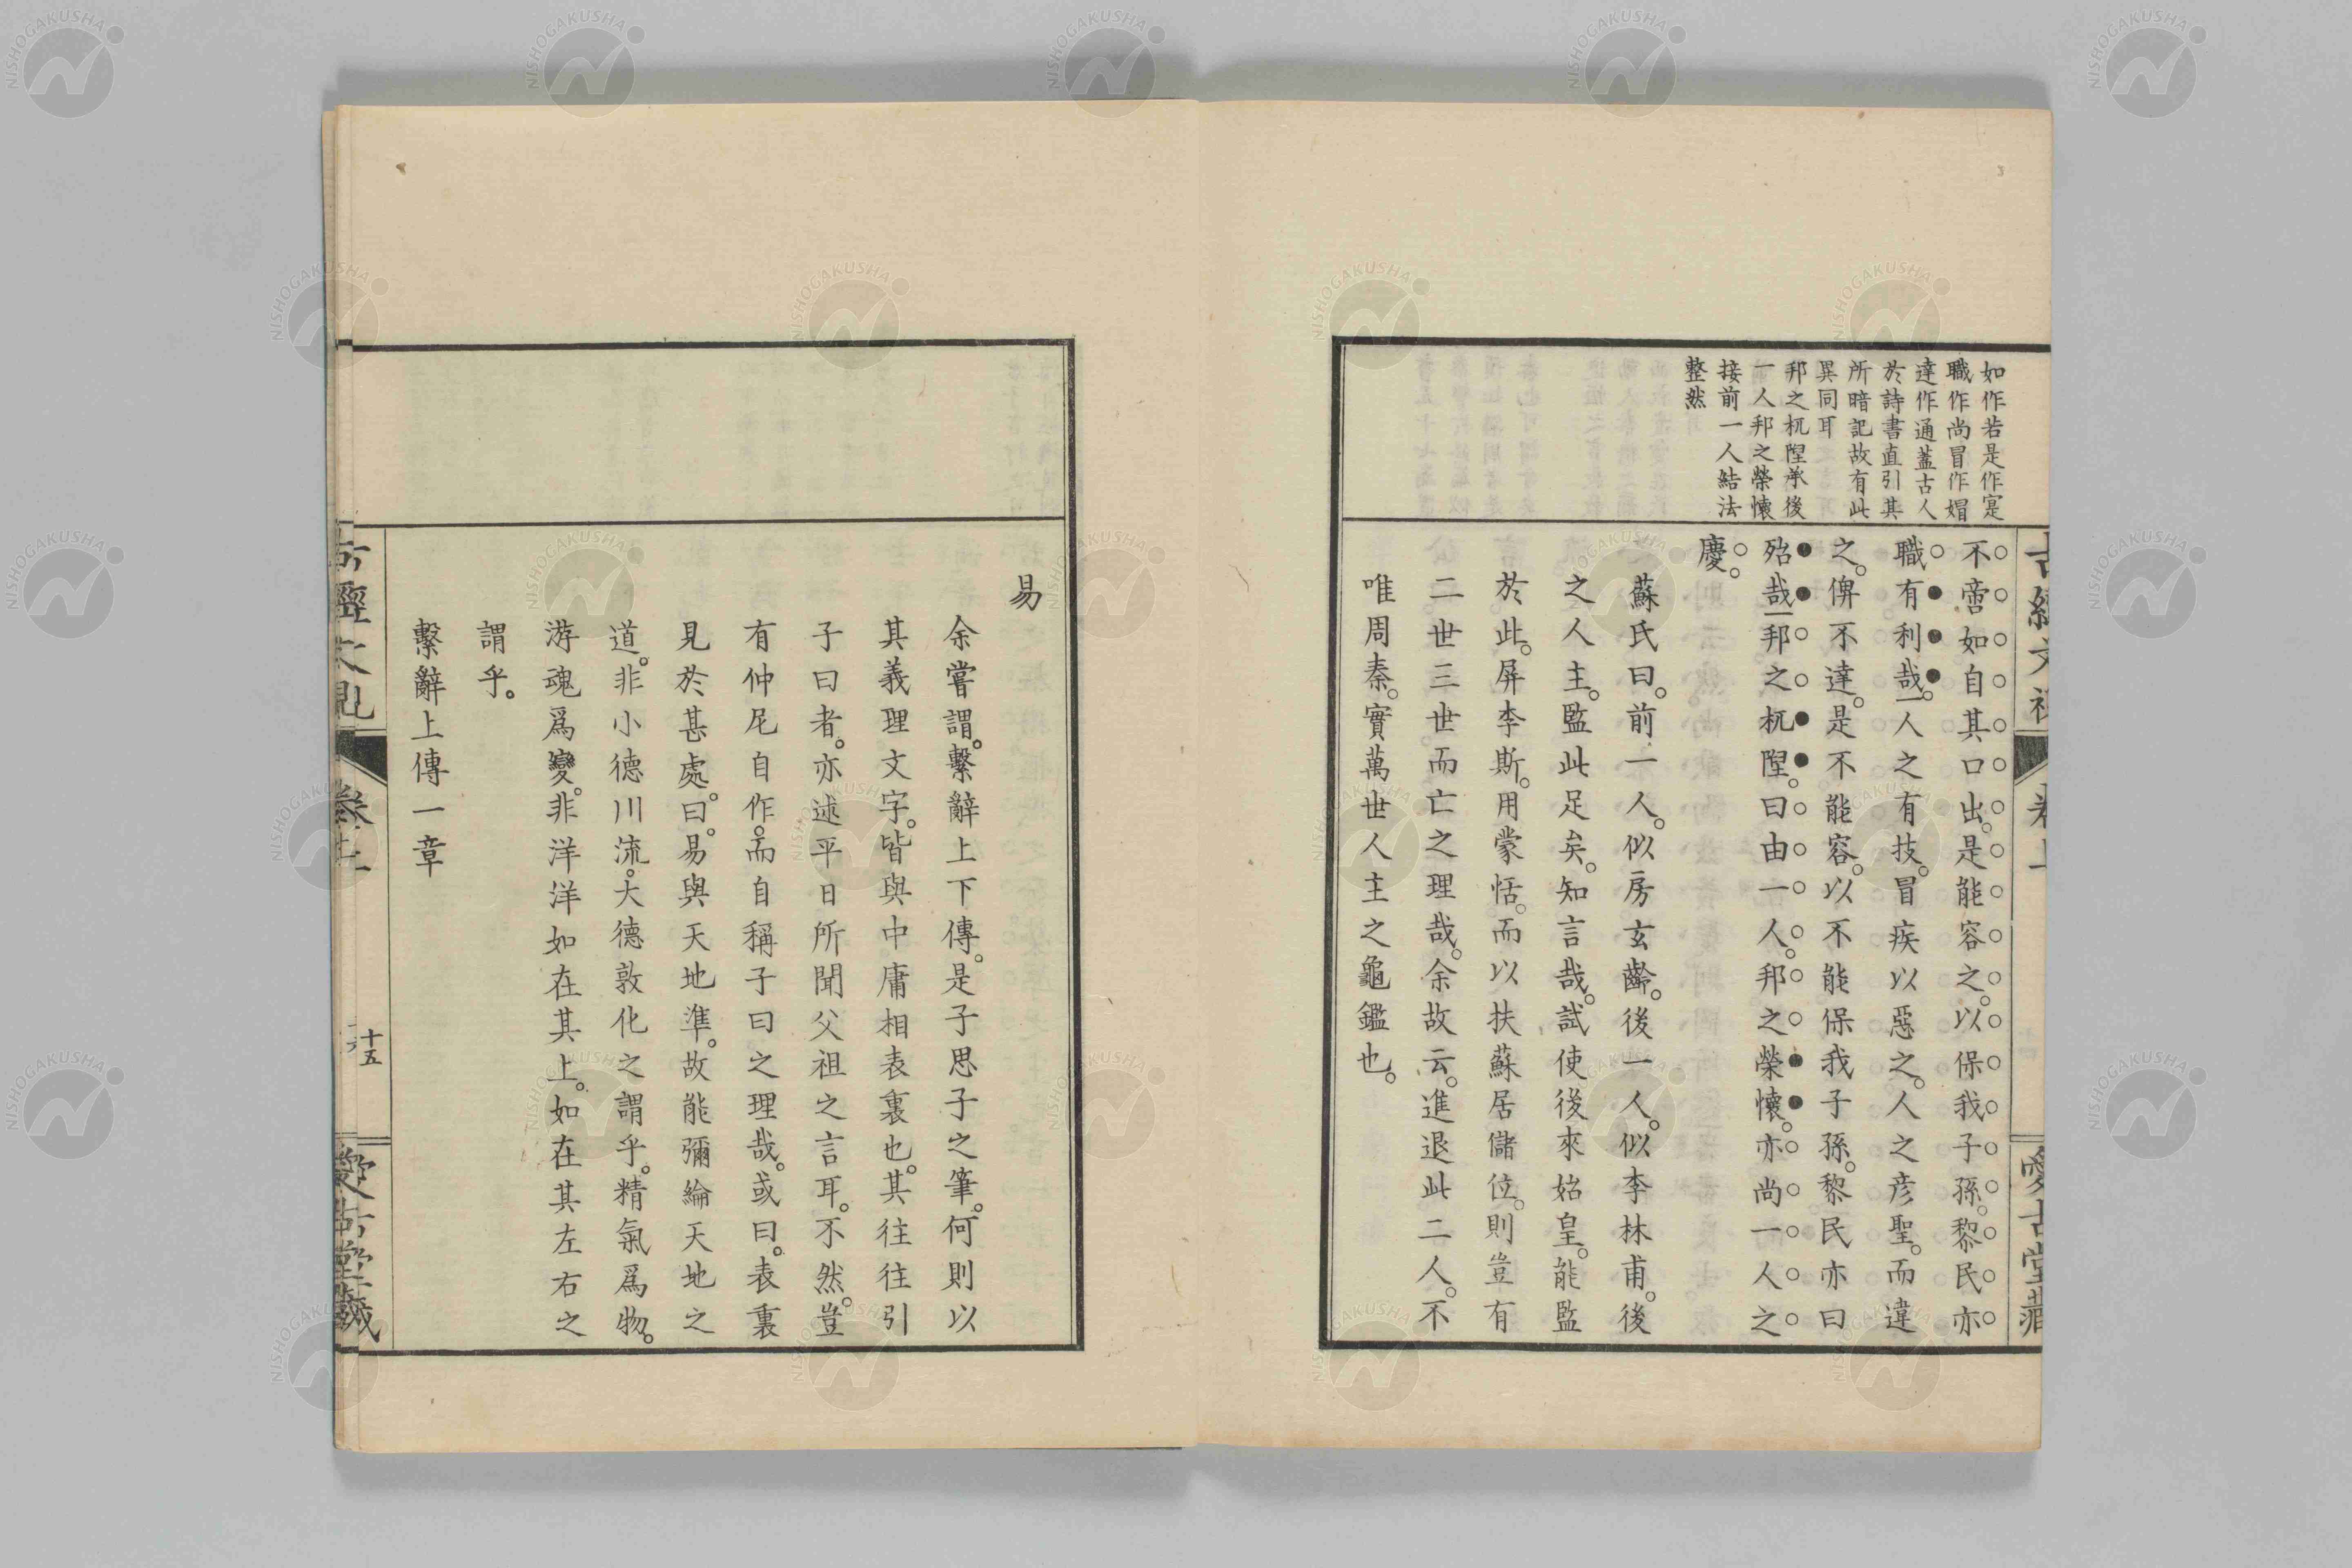 如作若是作寔
職作尚冒作媢
達作通蓋古人
於詩書直引其
所暗記故有此
異同耳
邦之杌隉承後
一人邦之榮懷
接前一人結法
整然
不啻如自其口出。是能容之。以保我子孫。黎民亦
職有利哉。人之有技。冒疾以惡之。人之彥聖。而違
之。俾不達。是不能容。以不能保我子孫。黎民亦曰
殆哉。邦之杌隉。曰由一人。邦之榮懷。亦尚一人之
慶。
蘇氏曰。前一人。似房玄齡。後一人。似李林甫。後
之人主。監此足矣。知言哉。試使後來始皇。能監
於此。屏李斯。用蒙恬。而以扶蘇居儲位。則豈有
二世三世而亡之理哉。余故云。進退此二人。不
唯周秦。實萬世人主之龜鑑也。
易
余嘗謂。繫辭上下傳。是子思子之筆。何則以
其義理文字。皆與中庸相表裏也。其往往引
子曰者。亦述平日所聞父祖之言耳。不然。豈
有仲尼自作。而自稱子曰之理哉。或曰。表裏
見於甚處。曰。易與天地準。故能彌綸天地之
道。非小德川流。大德敦化之謂乎。精氣爲物。
游魂爲變。非洋洋如在其上。如在其左右之
謂乎。
繫辭上傳一章
十五
愛古堂藏
NISHOGAKUSHA